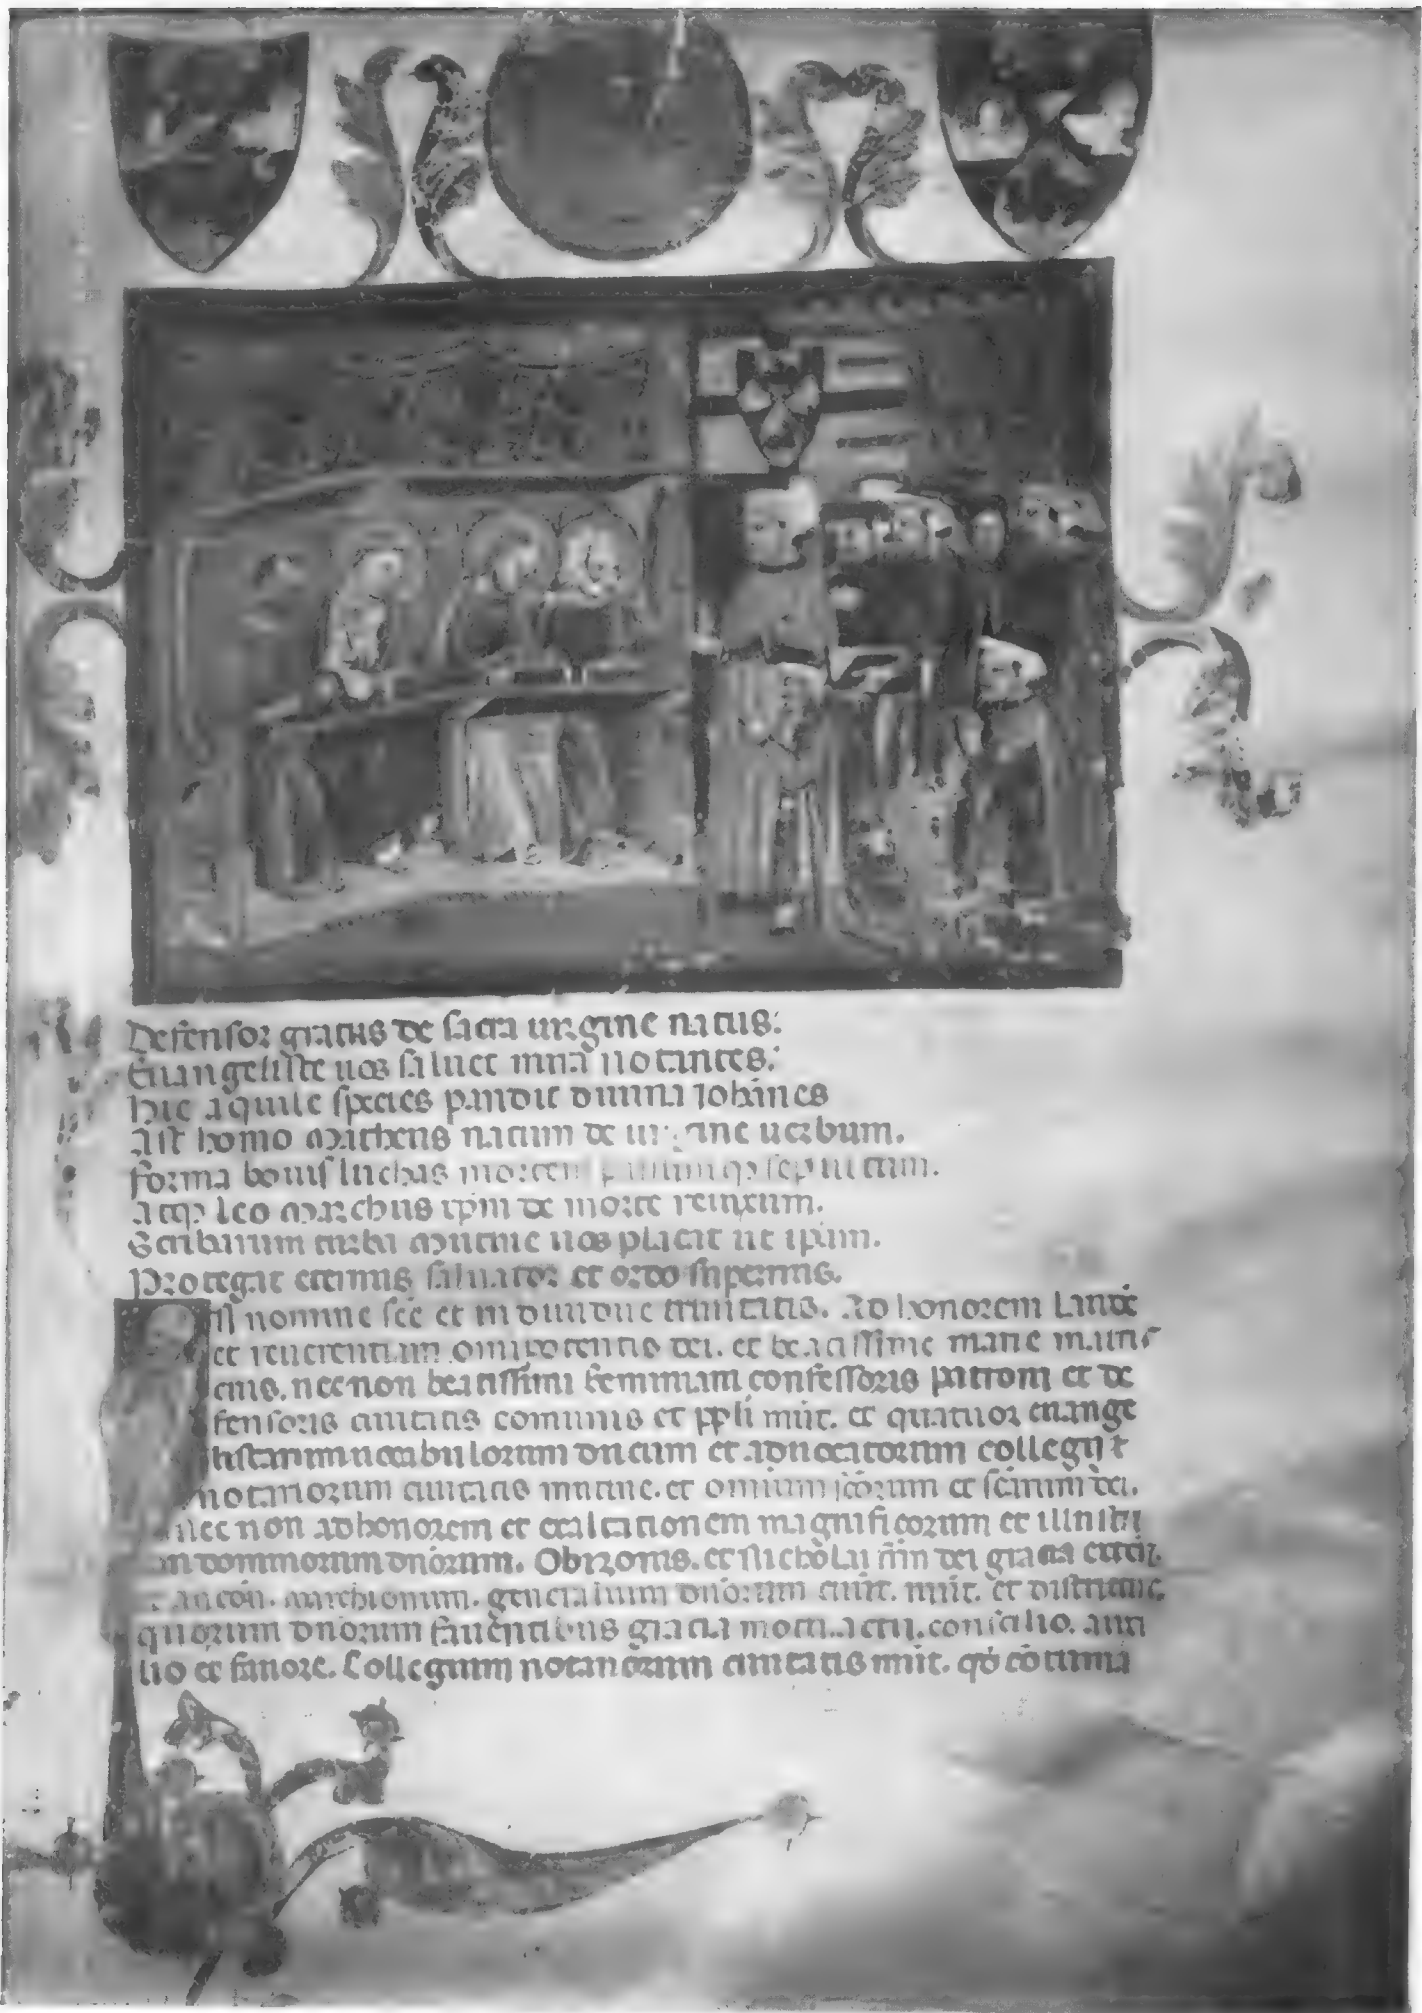 Defensor gratus de sacra uirgine natus:
Euangeliste uos saluet mna notantes:
Hic aquile species pandit diuina Iohannes
Ast homo Matheus natum de uirgine uerbum.
Forma bouis Luchas mortem sepultum.
Atq; leo Marchus ipm de morte reuixum.
Scribarum turba Mutine uos placat ut ipsum.
Protegat eternus saluator et ordo supernus.
In nomine sce et indiuidue trinitatis. Ad honorem laude
et reuerentiam omnipotentis dei. et beatissime marie matris
eius. nec non beatissimi Geminiani confessoris patroni et de
fensoris ciuitatis comunis et ppli mut. et quatuor euange
listarum ducum et aduocatorum collegij
notariorum ciuitatis mutine. et omnium et dei.
nec non ad honorem et exaltationem magnificorum et illustri
um dominorum dnorum. Obizonis. et Nicholai dei gratia esten.
marchionum. generalium dnorum ciuit. mut. et districtus.
quorum dnorum fauentibus gratia consilio. auxi
lio et fauore. Collegium notariorum ciuitatis mut. qd continua